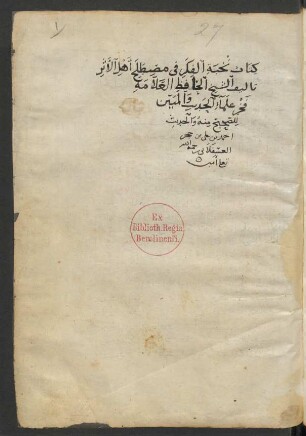 27
كتاب نخبة الفكر في مصطلح أهل الأثر
تاليف الشيخ الحافظ العلامة
علما الحديث والمبين
للصحيح منه والحديث
احمد بن علي بن حجر
العسقلاني رحمه الله
تعالى
Ex
Biblioth. Regia
Berolinensi.